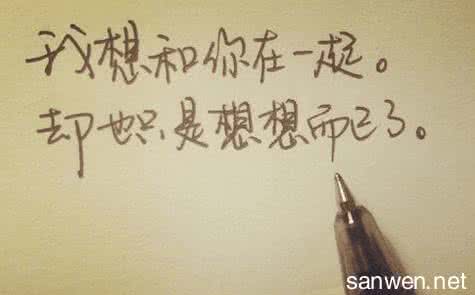 我想和你在一起。
却也只是想想而已了。
sanwen.net